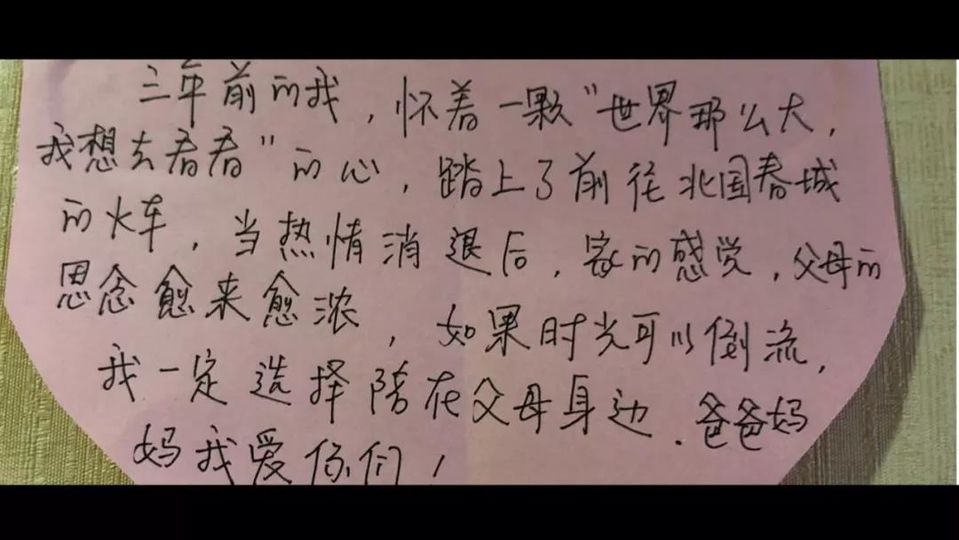 三年前的我，怀着一颗“世界那么大，
我想去看看”的心，踏上了前往北国春城
的火车，当热情消退后，家的感觉，父母的
思念愈来愈浓，如果时光可以倒流，
我一定选择陪在父母身边．爸爸妈
妈我爱你们！